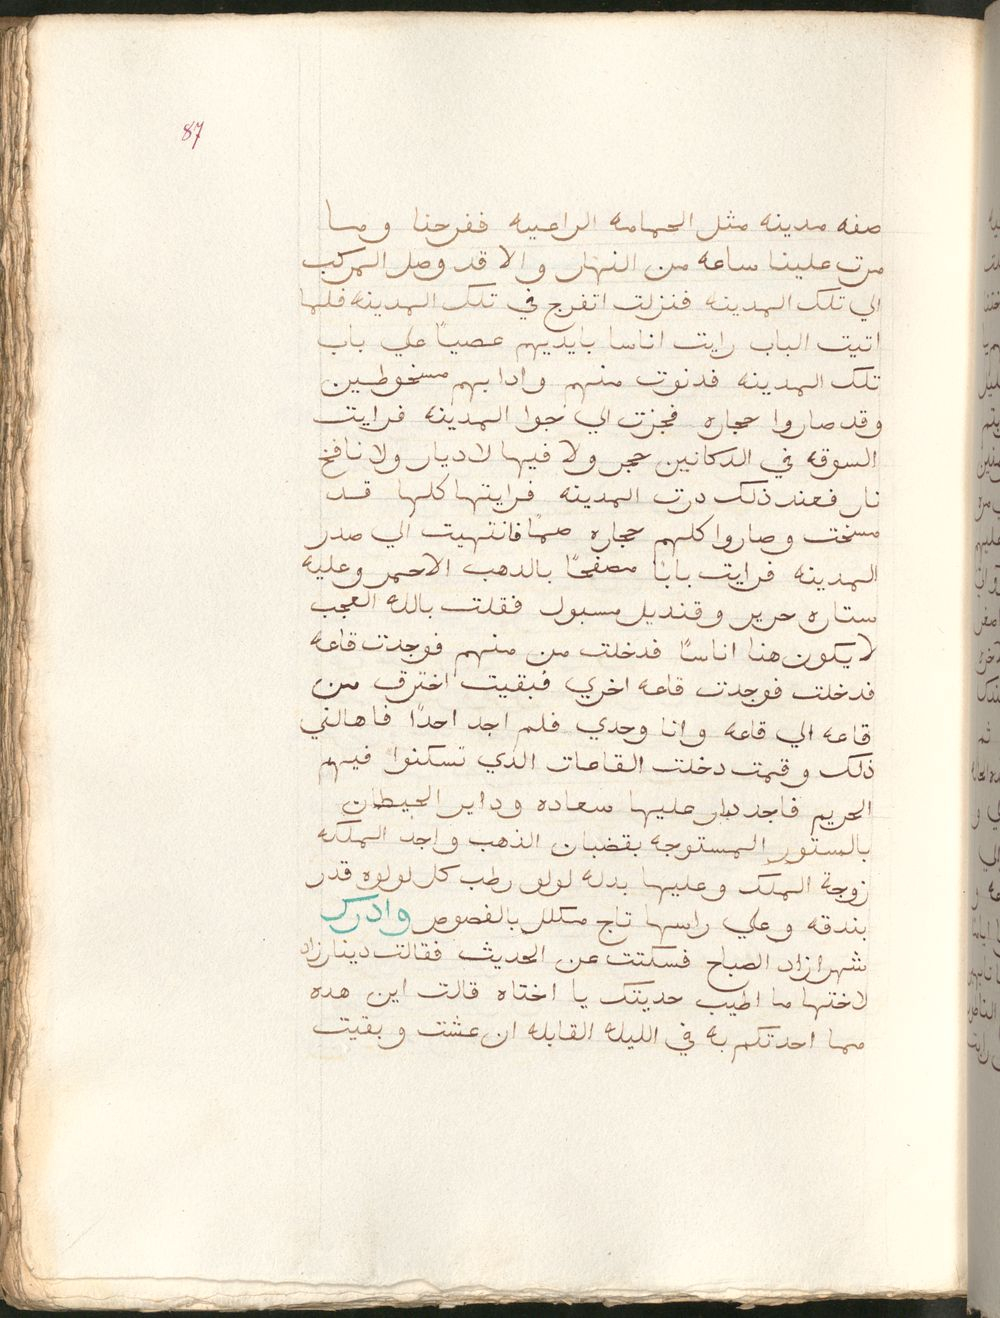 87
صفه مدينه مثل الحمامه الراعبيه ففرحنا وما
مرت علينا ساعه من النهار والا قد وصل المركب
الي تلك المدينه فنزلت اتفرج في تلك المدينه فلما
اتيت الباب رايت اناسا بايديهم عصيًا علي باب
تلك المدينه فدنوت منهم وادا بهم مسخوطين
وقد صاروا حجاره فجزت الي جوا المدينه فرايت
السوقه في الدكانين حجر ولا فيها لا ديار ولا نافخ
نار فعند ذلك درت المدينه فرايتها كلها قد
مسخت وصاروا كلهم حجاره صمًا فانتهيت الي صدر
المدينه فرايت بابًا مصفحًا بالدهب الاحمر وعليه
ستاره حرير وقنديل مسبول فقلت بالله العجب
لا يكون هنا اناسًا فدخلت من منهم فوجدت قاعه
فدخلت فوجدت قاعه اخري فبقيت اخترق من
قاعه الي قاعه وانا وحدي فلم اجد احدًا فاهالني
ذلك وقمت دخلت القاعات الذي تسكنوا فيهم
الحريم فاجد دار عليها سعاده وداير الحيطان
بالستور المستوجه بقضبان الذهب واجد الملكه
زوجة الملك وعليها بدله لولو رطب كل لولوه قدر
بندقه وعلي راسها تاج مكلل بالفصوص وادرك
شهرازاد الصباح فسكتت عن الحديث فقالت دينارزاد
لاختها ما اطيب حديتك يا اختاه قالت اين هده
مما احدتكم به في الليله القابله ان عشت وبقيت